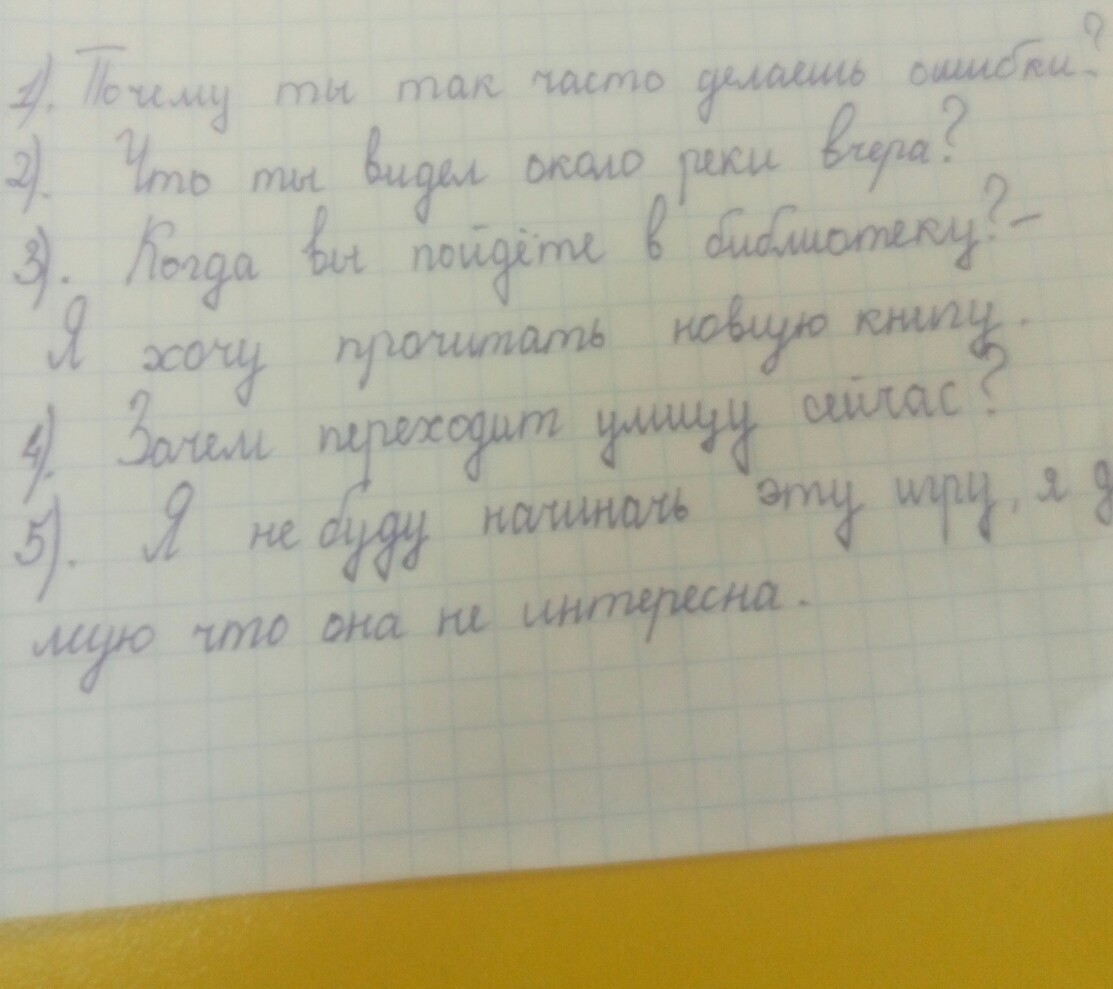 1). Почему ты так часто делаешь ошибки?
2). Что ты видел около реки вчера?
3). Когда вы пойдёте в библиотеку? -
Я хочу прочитать новую книгу.
4). Зачем переходит улицу сейчас?
5). Я не буду начинать эту игру, я д
маю что она не интересна.